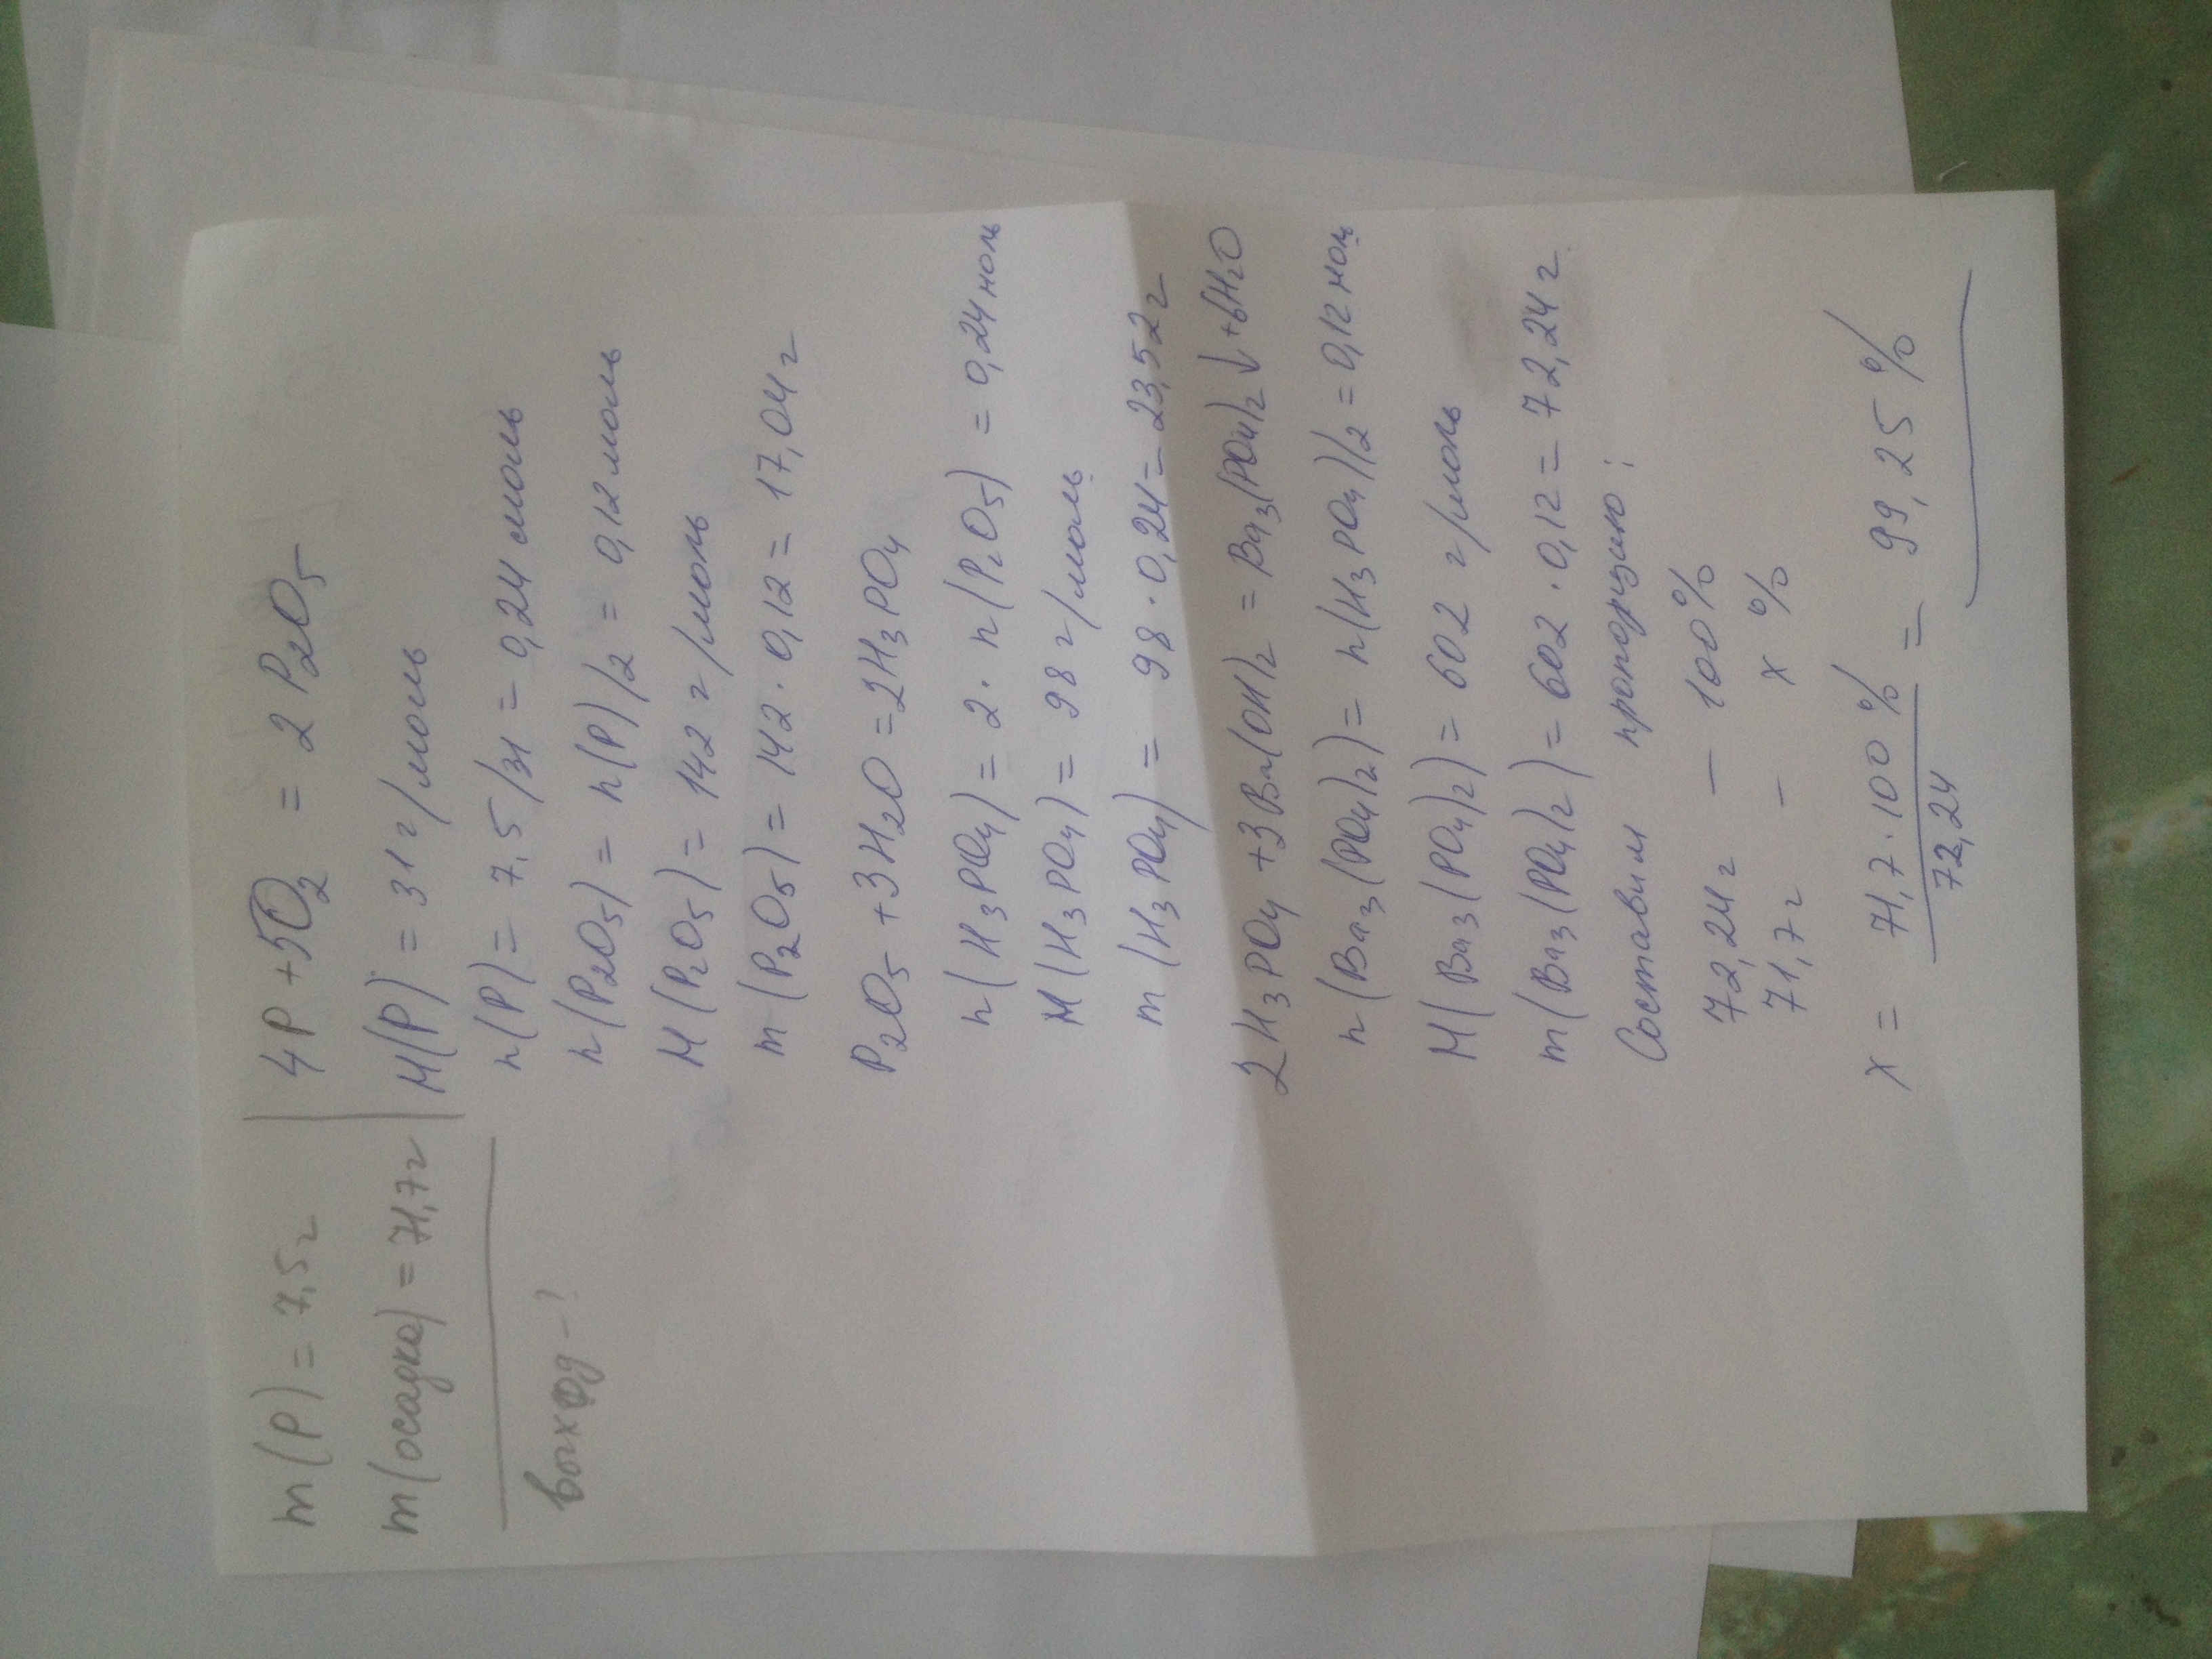 m(P) = 7,5г
m(осадка) = 71,7г
выход - ?
4P + 5O₂ = 2P₂O₅
M(P) = 31 г/моль
n(P) = 7,5/31 = 0,24 моль
n(P₂O₅) = n(P)/2 = 0,12 моль
M(P₂O₅) = 142 г/моль
m(P₂O₅) = 142 · 0,12 = 17,04 г
P₂O₅ + 3H₂O = 2H₃PO₄
n(H₃PO₄) = 2 · n(P₂O₅) = 0,24 моль
M(H₃PO₄) = 98 г/моль
m(H₃PO₄) = 98 · 0,24 = 23,52 г
2H₃PO₄ + 3Ba(OH)₂ = Ba₃(PO₄)₂↓ + 6H₂O
n(Ba₃(PO₄)₂) = n(H₃PO₄)/2 = 0,12 моль
M(Ba₃(PO₄)₂) = 602 г/моль
m(Ba₃(PO₄)₂) = 602 · 0,12 = 72,24 г
Составим пропорцию:
72,24 г – 100%
71,7 г – x %
x = 71,7 · 100% / 72,24 = 99,25 %